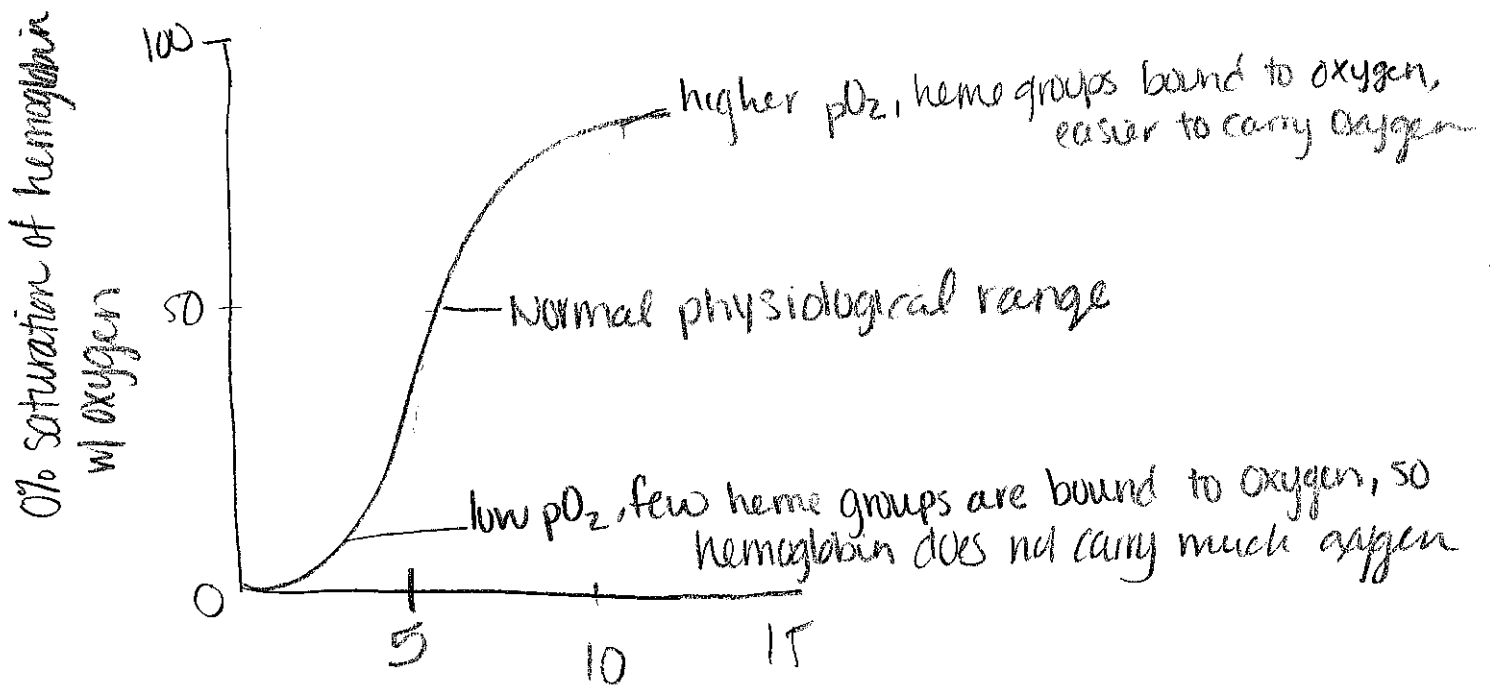 0% saturation of hemoglobin
w/ oxygen
100
higher pO₂, heme groups bound to oxygen,
easier to carry oxygen
50
Normal physiological range
low pO₂, few heme groups are bound to oxygen, so
hemoglobin does not carry much oxygen
0
5
10
15